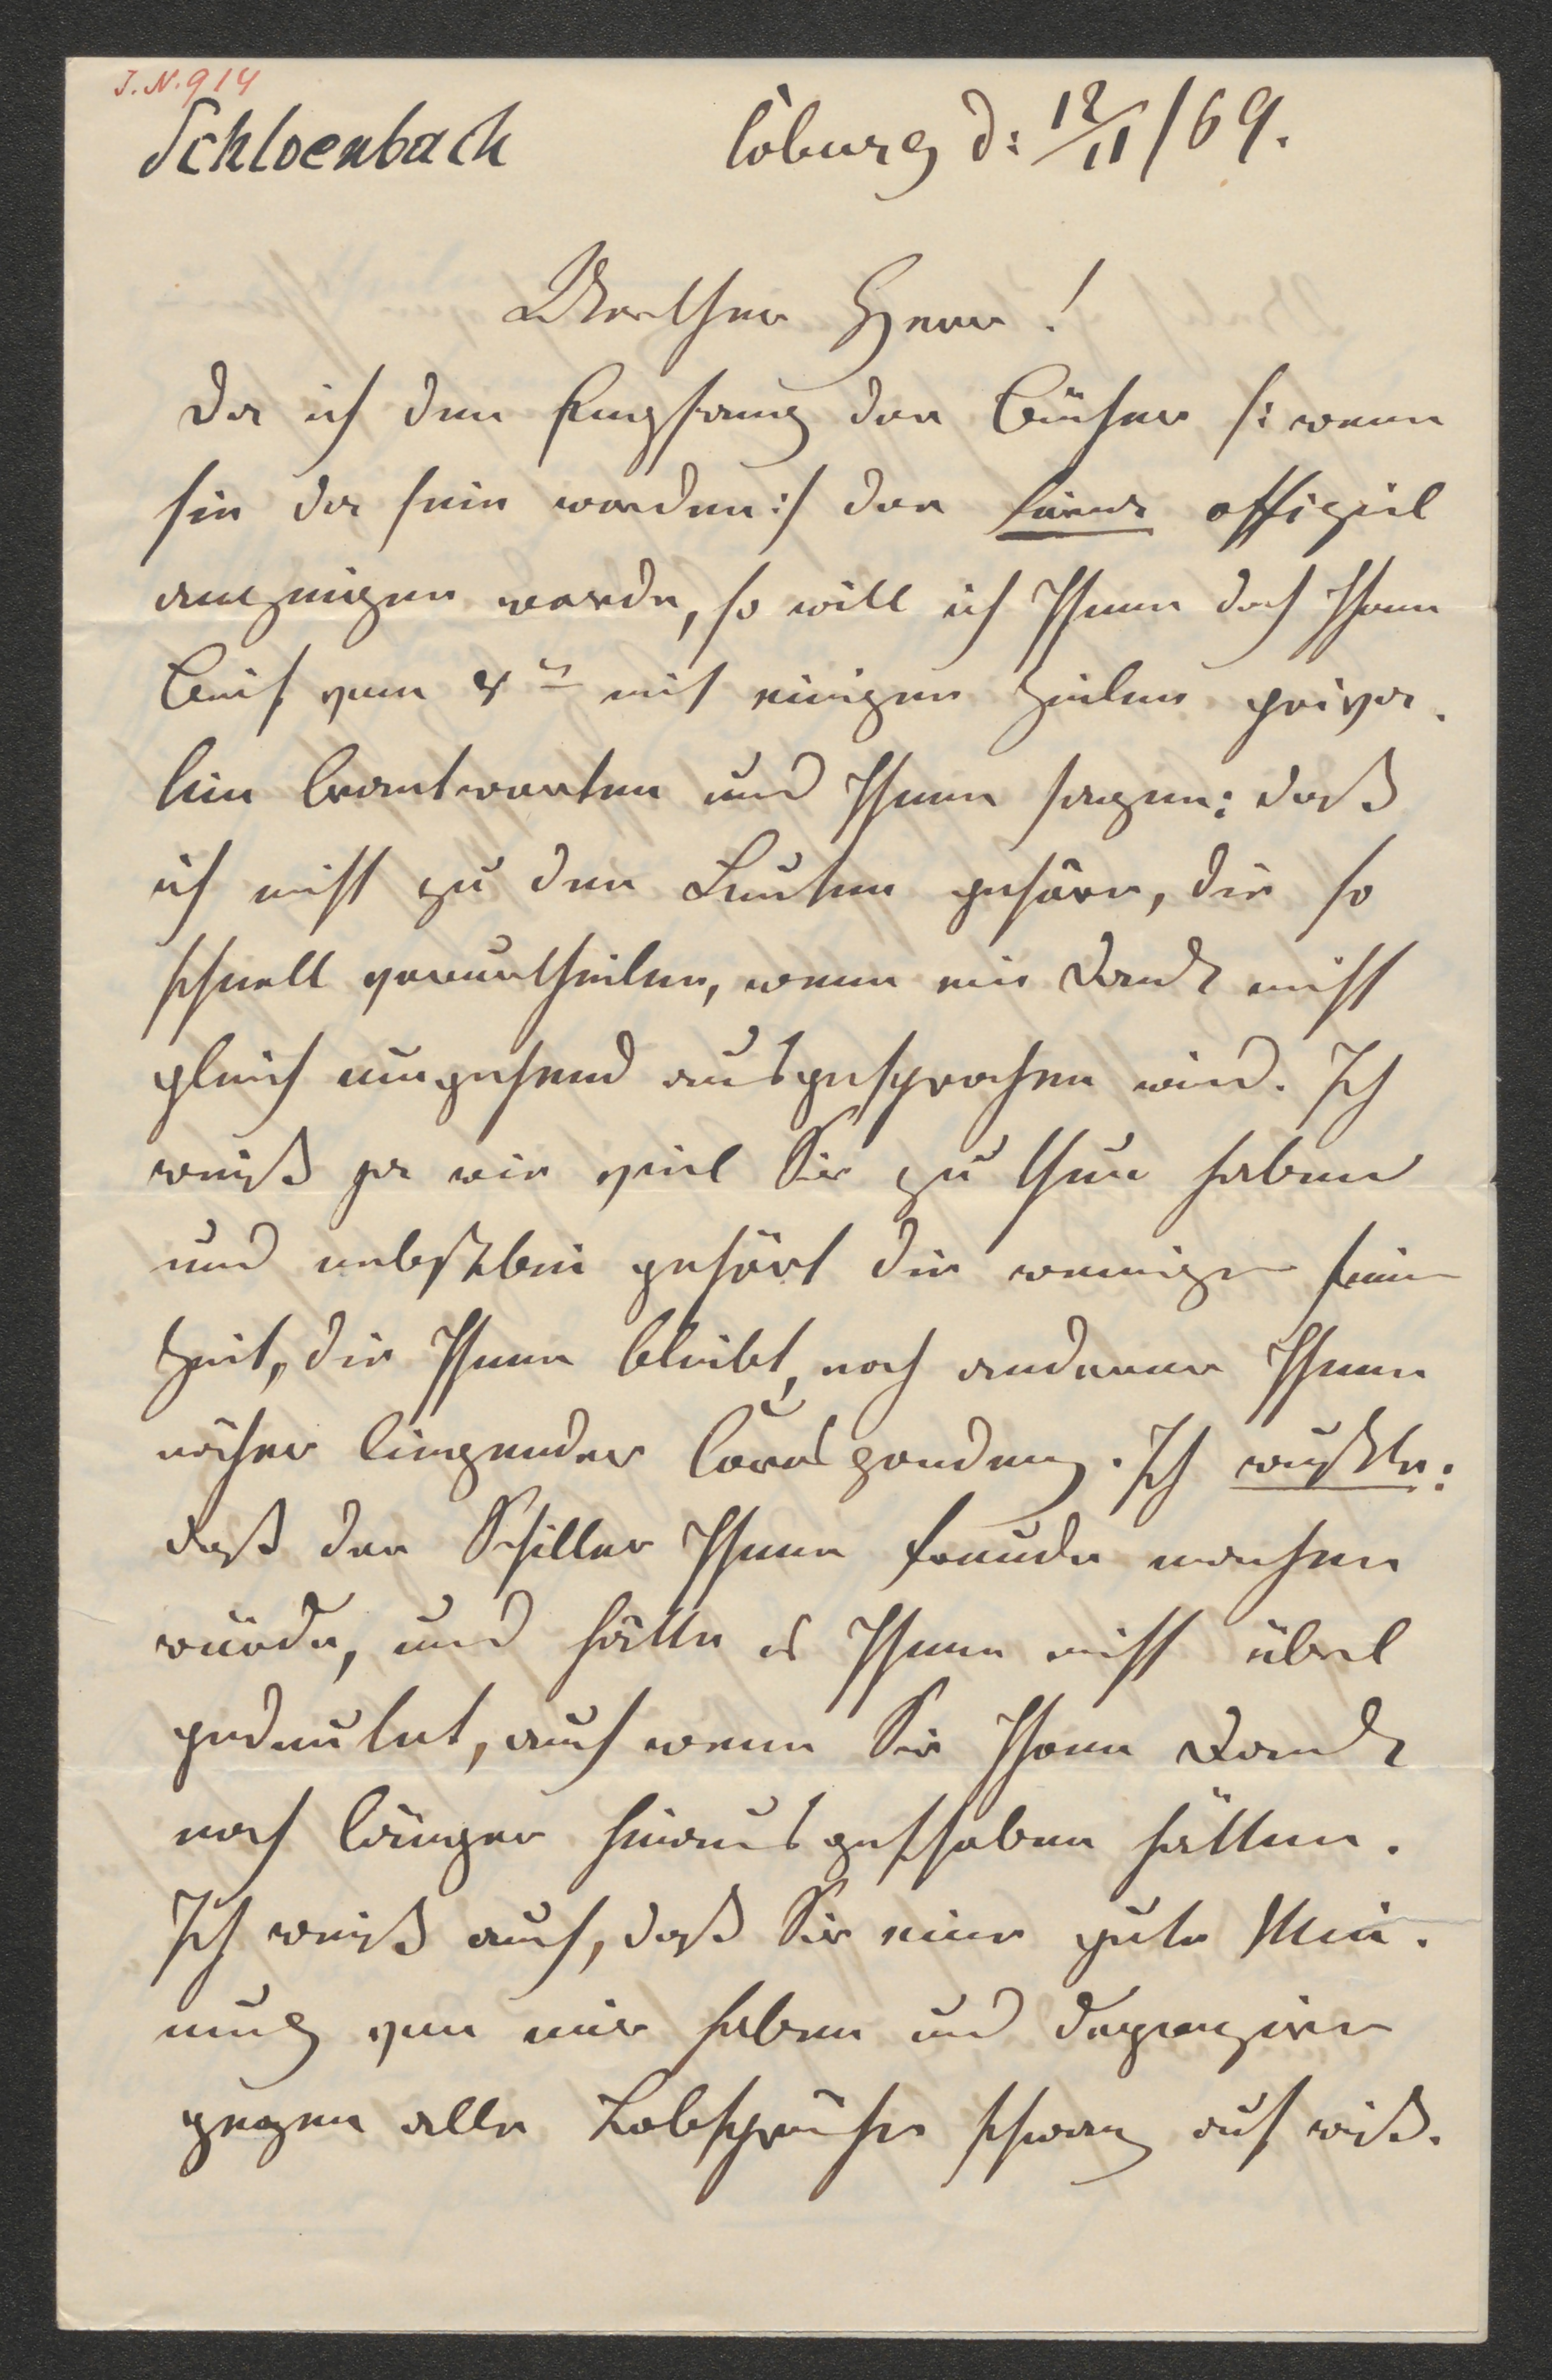 J. N. 914
Schloenbach
Coburg d: 12/11/69.
Werther Herr!
Da ich den Empfang der Bücher /: wenn
sie da sein werden :/ der offiziel
anzeigen werde, so will ich Ihnen doch Ihren
Brief vom 8ten mit einigen Zeilen priva-
tim beantworten und Ihnen sagen: daß
ich nicht zu den Leuten gehöre, die so
schnell verurtheilen, wenn ein Dank nicht
gleich umgehend ausgesprochen wird. Ich
weiß ja wie viel Sie zu thun haben
und nebstbei gehört die wenige freie
Zeit, die Ihnen bleibt, noch anderer Ihnen
näher liegender Correspondenz. Ich wußte:
daß der Schiller Ihnen Freude machen
würde, und hätte es Ihnen nicht übel
gedeutet, auch wenn Sie Ihren Dank
noch länger hinausgeschoben hätten.
Ich weiß auch, daß Sie eine gute Mei-
nung von mir haben und
gegen alle Lobsprüche schwarz auf weiß.